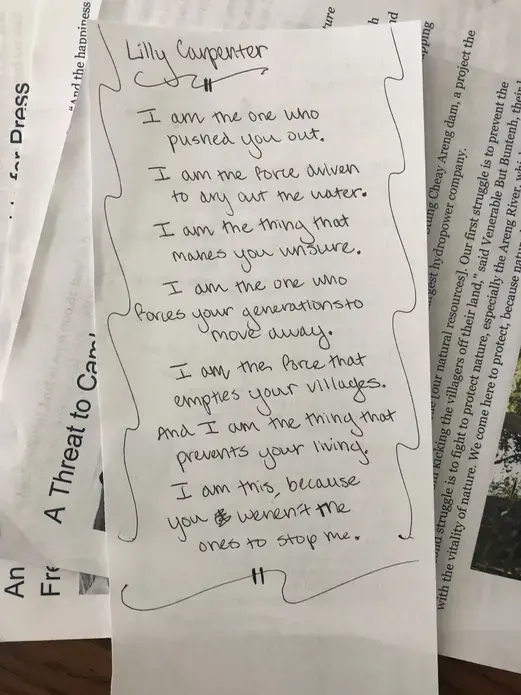 Lilly Carpenter
I am the one who
pushed you out.
I am the force driven
to dry out the water.
I am the thing that
makes you unsure.
I am the one who
forces your generations to
move away.
I am the force that
empties your villages.
And I am the thing that
prevents your living.
I am this, because
you weren't the
ones to stop me.
for Press
"And the happiness
A Threat to Cam
An
Fre
ture
Cheay Areng dam, a project the
gest hydropower company.
[our natural resources]. Our first struggle is to prevent the
kicking the villagers off their land," said Venerable But Buntenh, their
struggle is to fight to protect nature, especially the Areng River, whi
with the vitality of nature. We come here to protect, because natu